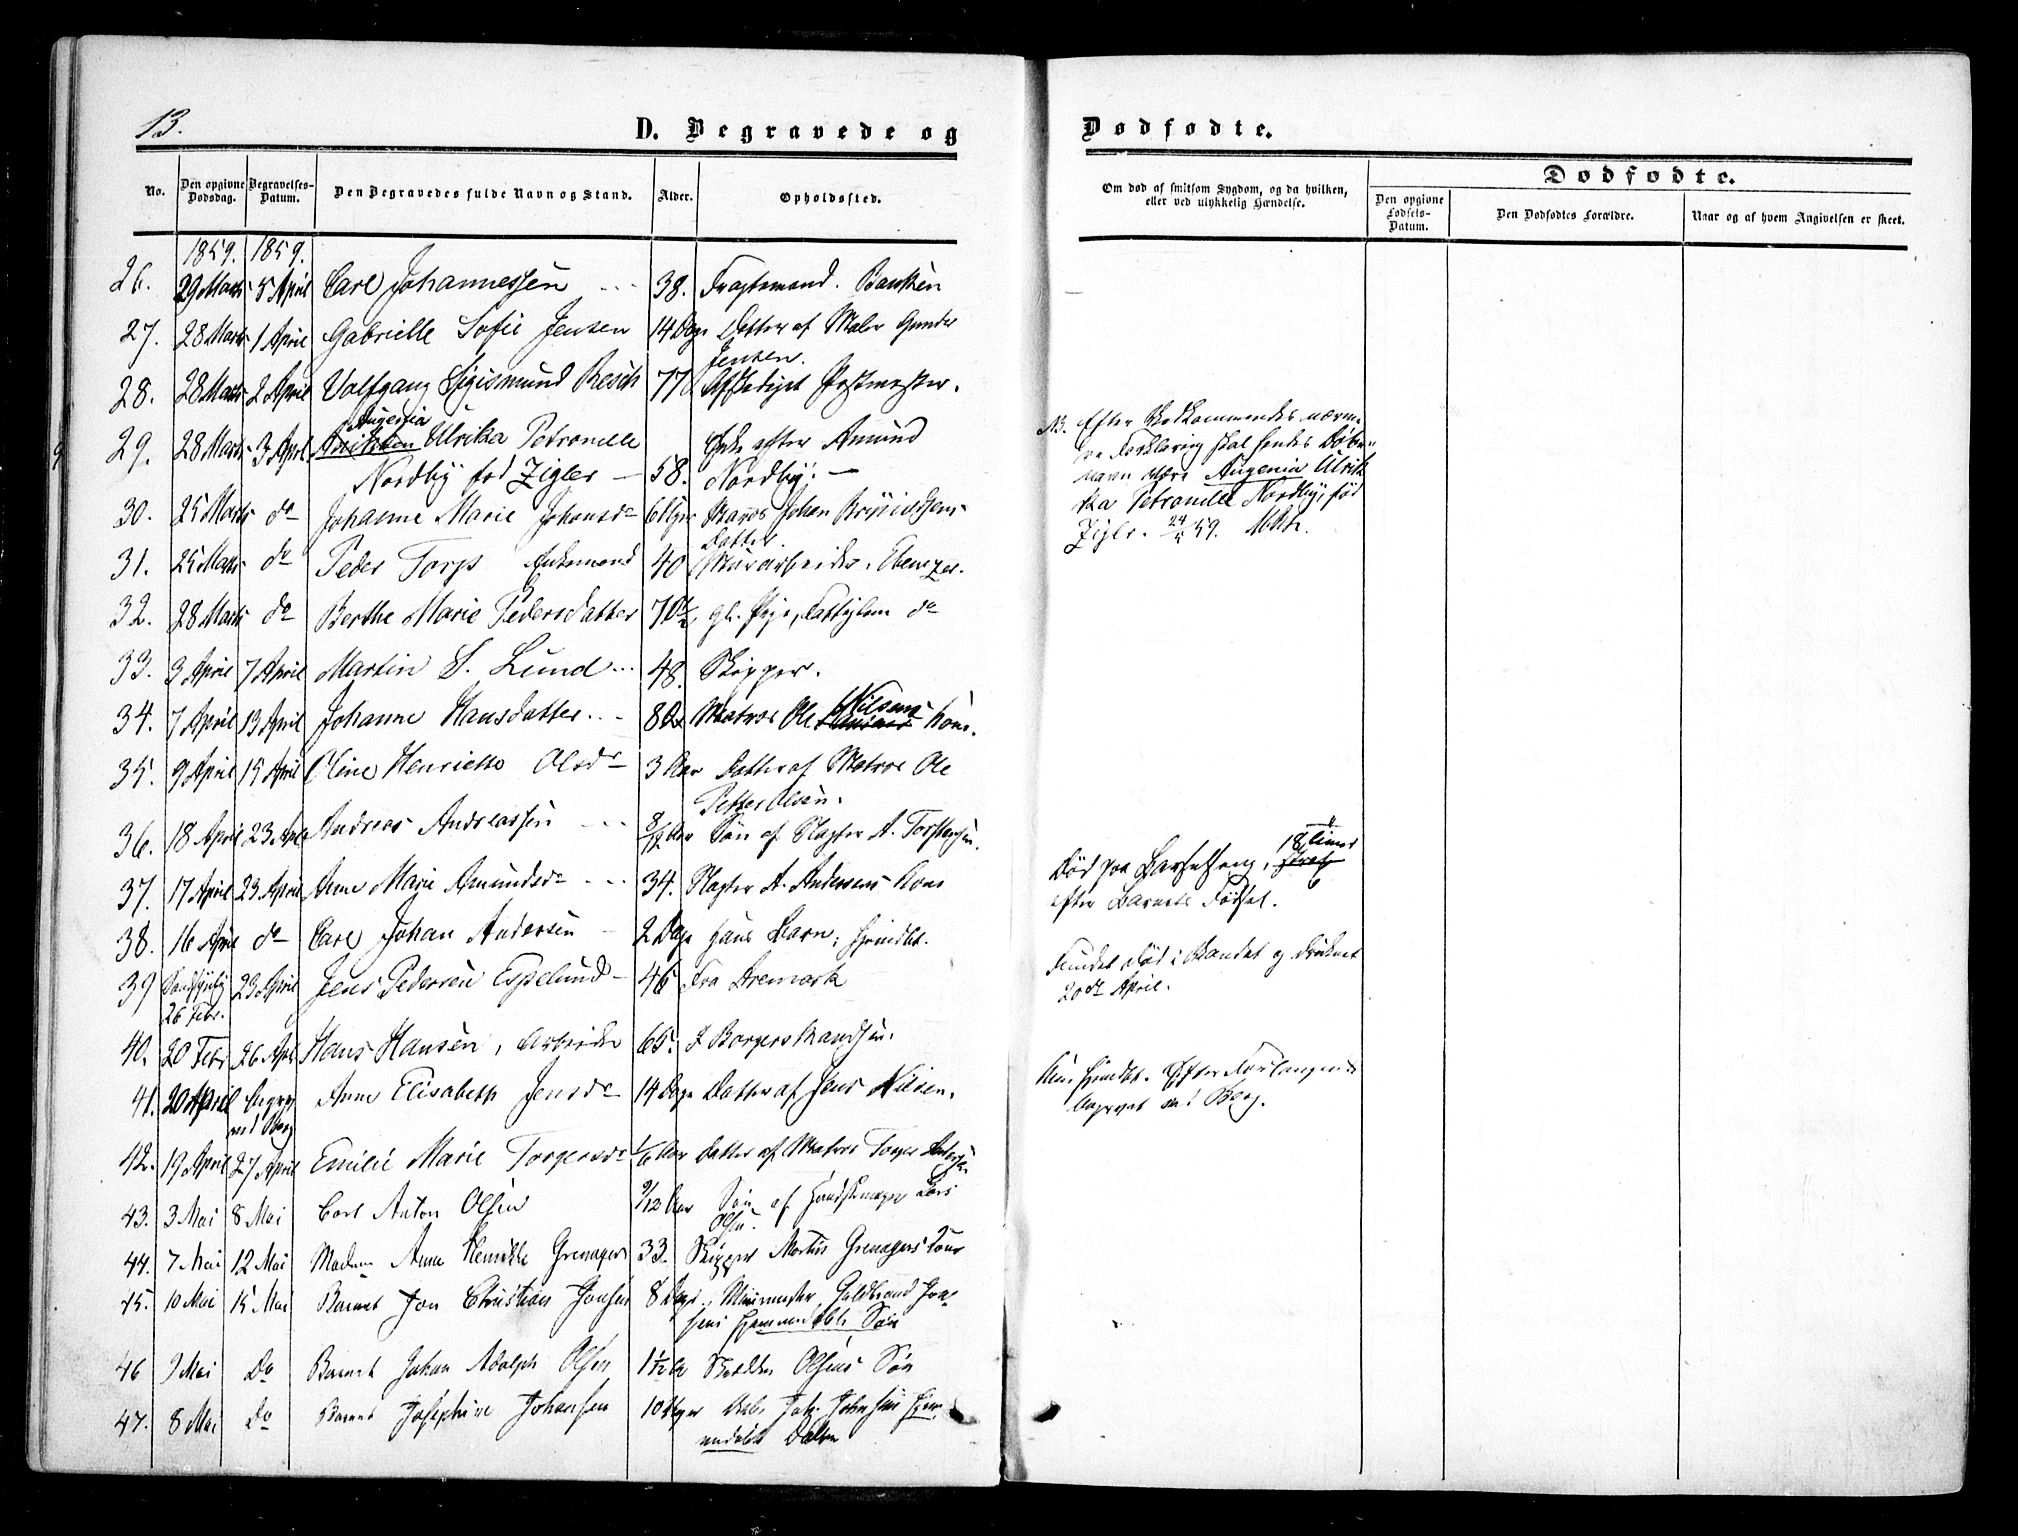 13.
D. Begravede og
Dødfødte.
No.
Den opgivne Dødsdag.
Begravelses-Datum.
Den Begravedes fulde Navn og Stand.
Alder.
Opholdssted.
Om død af smitsom Sygdom, og da hvilken,
eller ved ulykkelig Hændelse.
Dødfødte.
Den opgivne Fødsels-Datum.
Den Dødfødtes Forældre.
Naar og af hvem Angivelsen er skeet.
1859. 1859.
26. 29 Marts 5 April Carl Johannessen 38. Fragtemand. Banken
27. 28 Marts 1 April Gabrielle Sofie Jensen 14 Dage Datter af Maler Gunder
Jensen.
28. 28 Marts 2 April Volfgang Sigismund Resch 77 Afskediget Postmester.
Augenia
29. 28 Marts 3 April Ulrika Petronelle Enke efter Amund
Nordby fød Zigler 58. Nordby.
30. 25 Marts do Johanne Marie Johansdr 6 Uger Matros Johan
Datter.
31. 25 Marts do Peder Torp Enkemand 40 Murarbeider, Ebenezer.
32. 28 Marts do Berthe Marie Pedersdatter 70½ gl. Pige, Fattiglem do
33. 3 April 7 April Martin S. Lund 48. Skipper.
34. 7 April 13 April Johanne Hansdatter 80 Matros Ole Nilsens Kone.
35. 9 April 15 April Oline Henriette Olsdr 3 Aar Datter af Matros Ole
Petter Olsen.
36. 18 April 23 April Andreas Andreassen 8/12 Aar Søn af Slagter A. Torstensen.
37. 17 April 23 April Anne Marie Amundsdr 34. Slagter A. Andersens Kone
38. 16 April do Carl Johan Andersen 2 Dage hans Barn, hjemdøbt.
39 23 April Jens Pedersen Espelund 46 Fra Aremark
26 Febr.
40. 20 Febr 26 April Hans Hansen, Arbeider 65. I Borgerstrandsen.
41. 20 April Begrav Anne Elisabeth Jensdr 14 Dage Datter af Jens Nilsen.
ved Berg
42. 19 April 27 April Emilie Marie Torgersdr 1/6 Aar Datter af Matros Torger Andersen
43. 3 Mai 8 Mai Carl Anton Olsen 9/12 Aar Søn af Lars
Olsen.
44. 7 Mai 12 Mai Madam Anne Grenager 33. Skipper Martin Grenagers Kone
45. 10 Mai 15 Mai Barnet Jon Christian Jonsen 8 Dage. Muurmester Guldbrand Jon-
sens hjemmedøbte Søn
46 9 Mai Do Barnet Johan Adolph Olsen 1½ Aar Olsens Søn
47. 8 Mai Do Barnet Josephine Johansen 10 Uger hjem-
medøbt Datter
NB. Efter Vedkommendes nærme-
re Forklaring skal hendes Døbe-
navn være Augenia Ulrik-
ka Petronelle Nordby, fød
Zigler. 59.
Død paa Barselseng, 18 timer
efter Barnets Fødsel.
Fundet død i Vandet og druknet
20de April.
hjemdøbt. Efter Forlangende
begravet ved Berg.